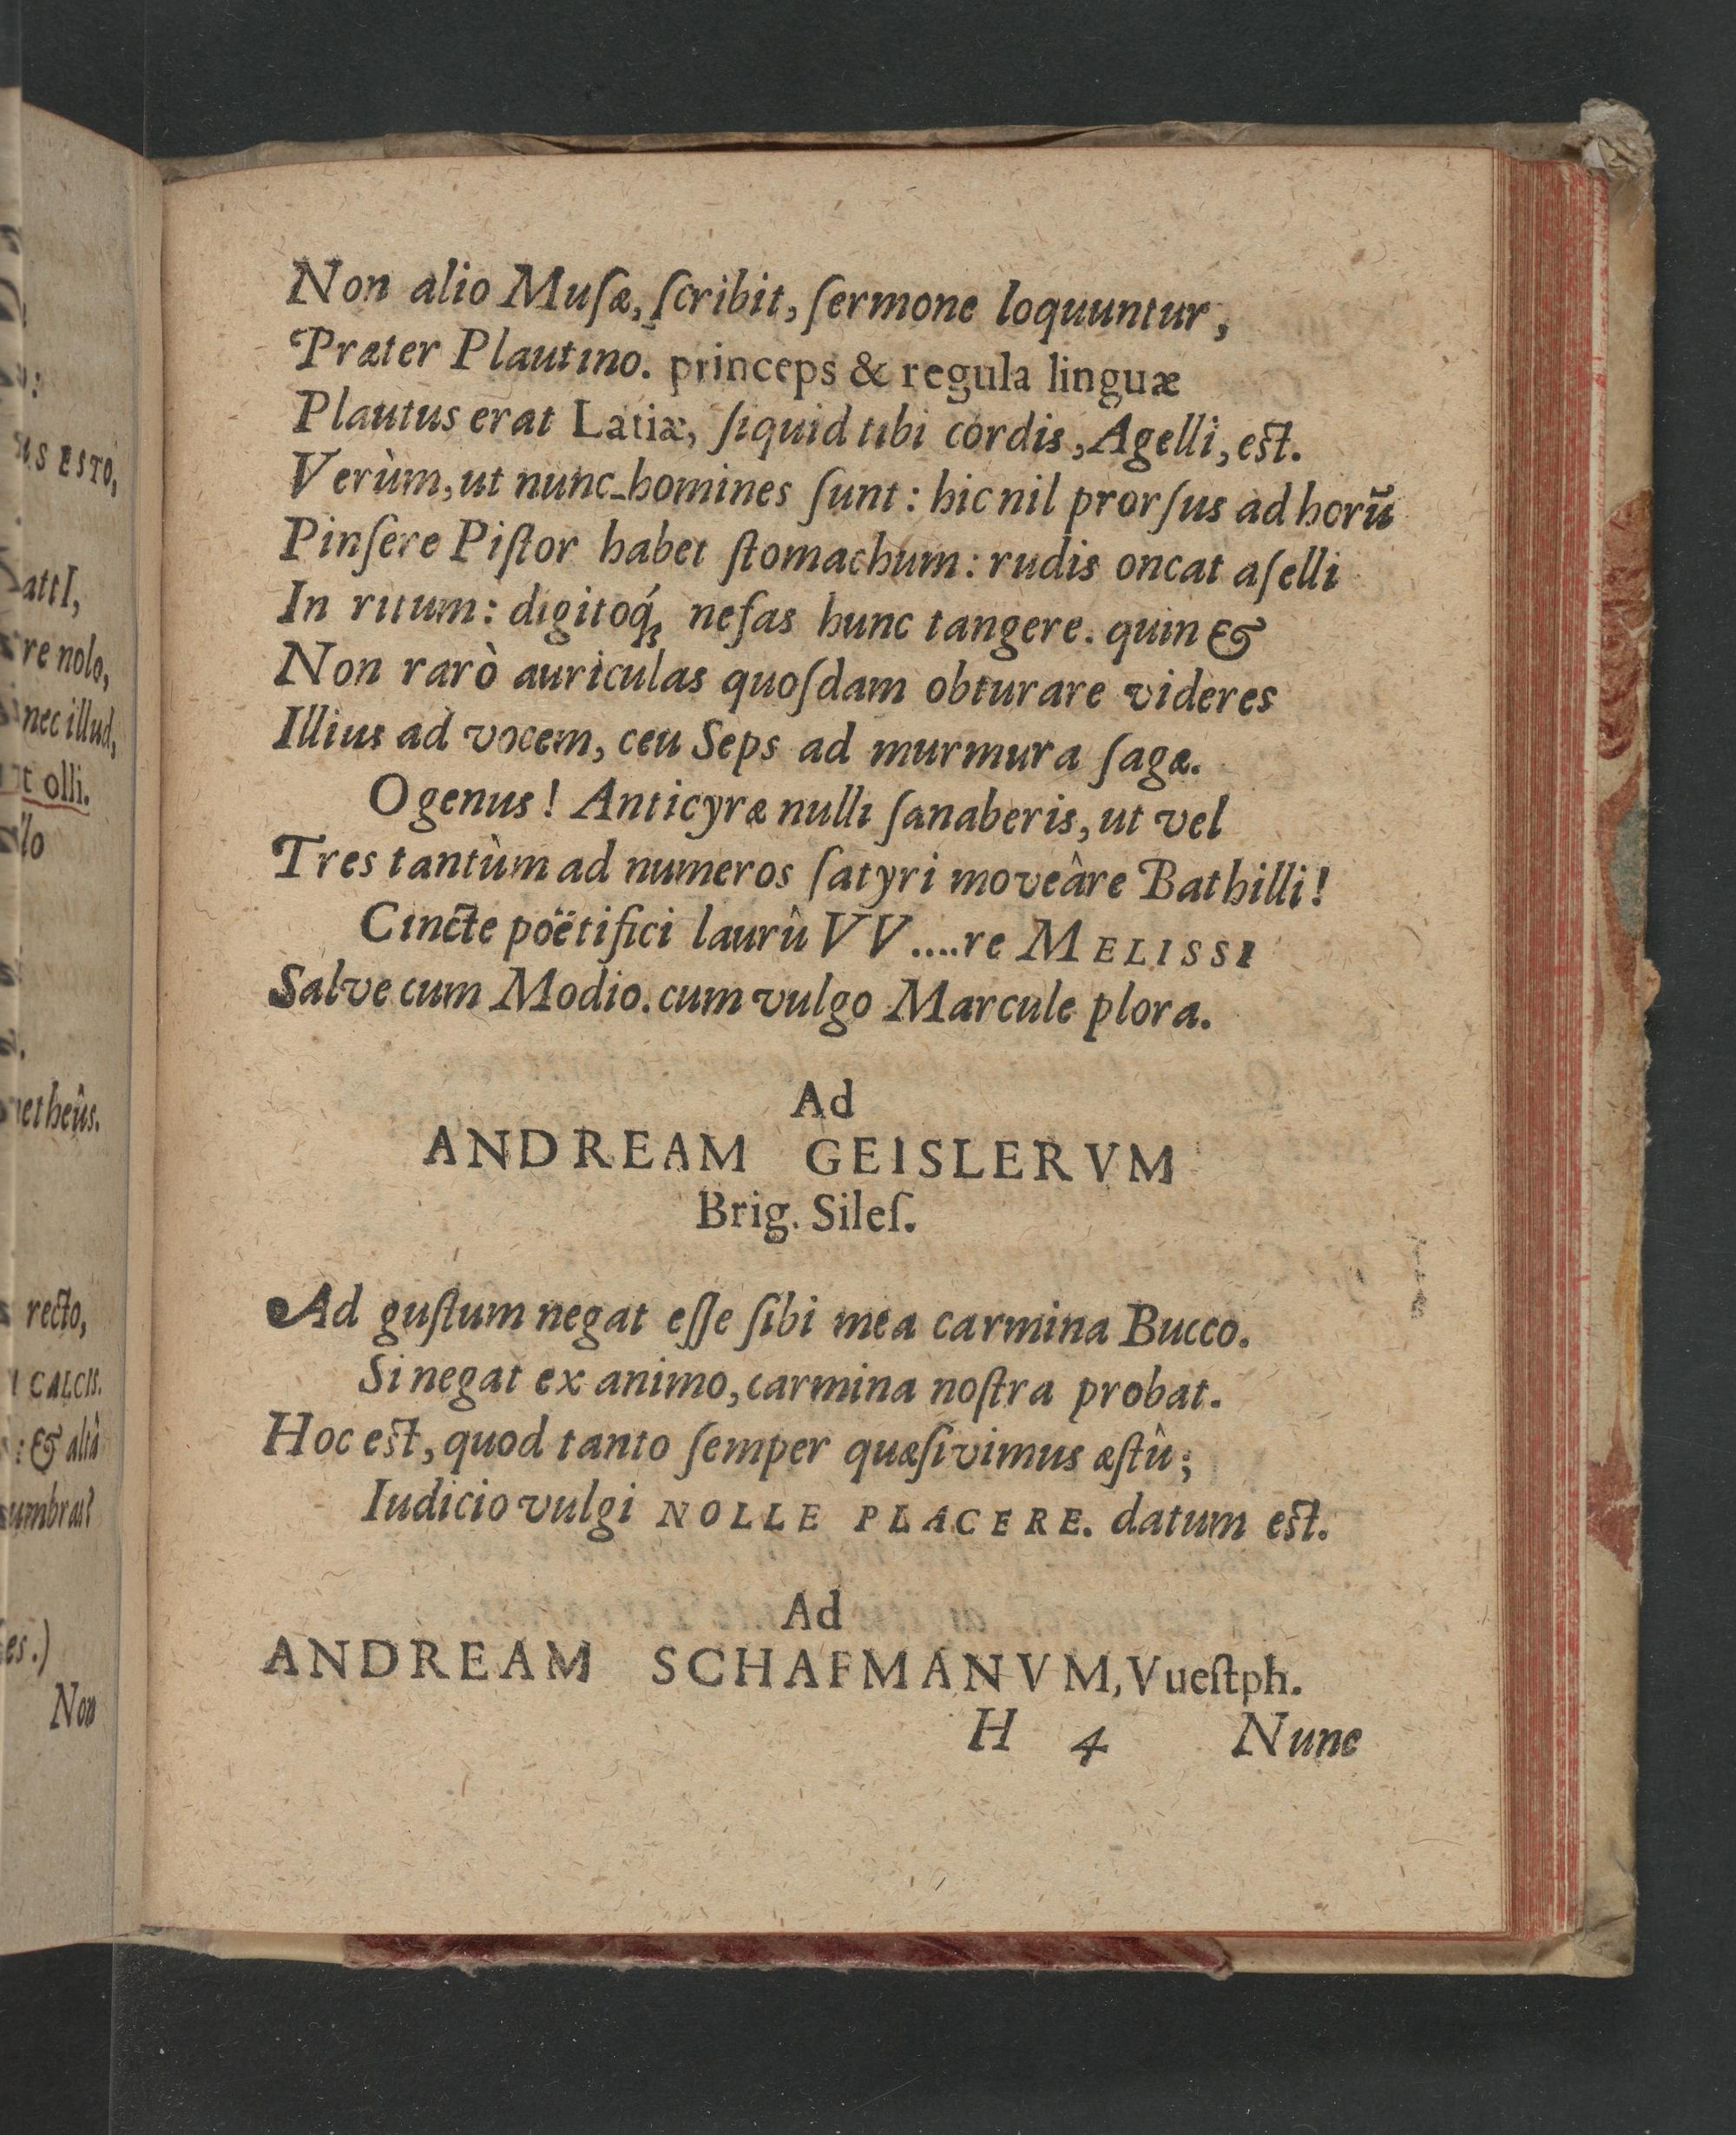 Non alio Muſæ, ſcribit, ſermone loquuntur,
Præter Plautino. princeps & regula linguæ
Plautus erat Latiæ, ſiquid tibi cordis, Agelli, est.
Verùm, ut nunc homines ſunt: hic nil prorſus ad horũ
Pinſere Piſtor habet ſtomachum: rudis oncat aſelli
In ritum: digitoq́; nefas hunc tangere. quin &
Non rarò auriculas quoſdam obturare videres
Illius ad vocem, ceu Seps ad murmura ſagæ.
O genus! Anticyræ nulli ſanaberis, ut vel
Tres tantùm ad numeros ſatyri moveâre Bathilli!
Cincte poëtifici laurû VV....re MELISSI
Salve cum Modio. cum vulgo Marcule plora.
Ad
ANDREAM GEISLERVM
Brig. Sileſ.
Ad guſtum negat eſſe ſibi mea carmina Bucco.
Si negat ex animo, carmina noſtra probat.
Hoc est, quod tanto ſemper quæſivimus æſtû;
Iudicio vulgi NOLLE PLACERE. datum est.
Ad
ANDREAM SCHAFMANVM, Vueſtph.
H 4 Nunc